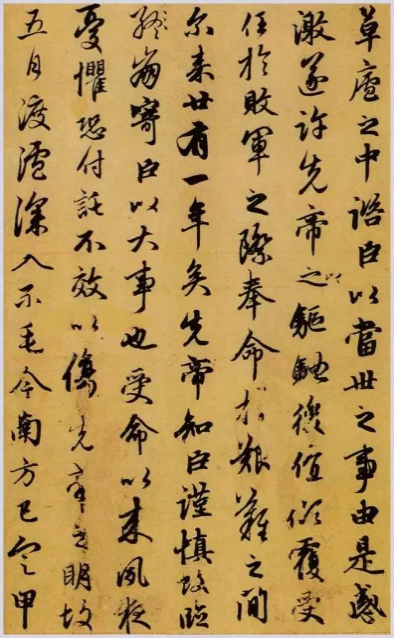 草廬之中諮臣以當世之事由是感
激遂許先帝之以驅馳後值傾覆受
任於敗軍之際奉命於艱難之間
尔来廿有一年矣先帝知臣謹慎故臨
崩寄臣以大事也受命以来夙夜
憂懼恐付託不效以傷先帝之明故
五月渡瀘深入不毛今南方已定甲